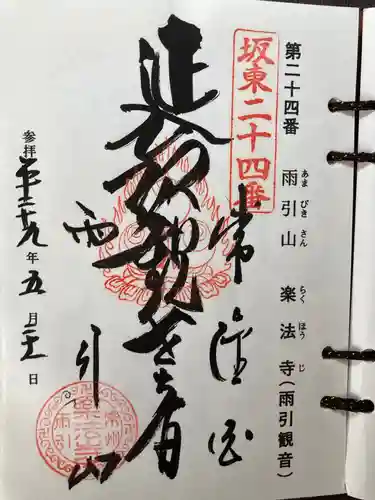 第二十四番 雨引山 楽法寺(雨引観音)
あまびきさん らくほうじ
坂東二十四番
常陸国
延命観世音
雨引山
参拝 平成二十九年五月二十一日